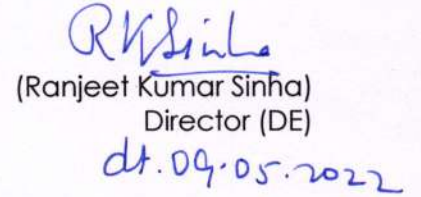 RKSinha
(Ranjeet Kumar Sinha)
Director (DE)
dt. 09.05.2022